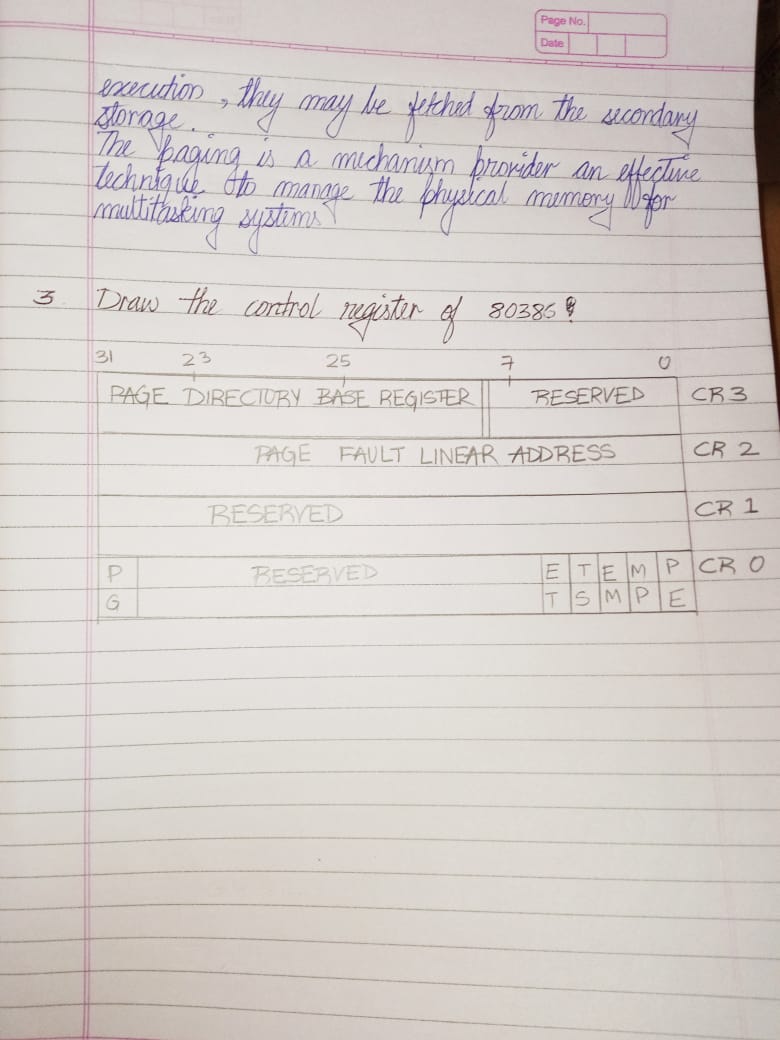 Page No.
Date
execution, they may be fetched from the secondary
storage.
The paging is a mechanism provider an effective
technique to manage the physical memory for
multitasking systems
3 Draw the control register of 80386?
31 23 25 7 0
PAGE DIRECTORY BASE REGISTER RESERVED CR3
PAGE FAULT LINEAR ADDRESS CR 2
RESERVED CR 1
P RESERVED E T E M P CR 0
G T S M P E